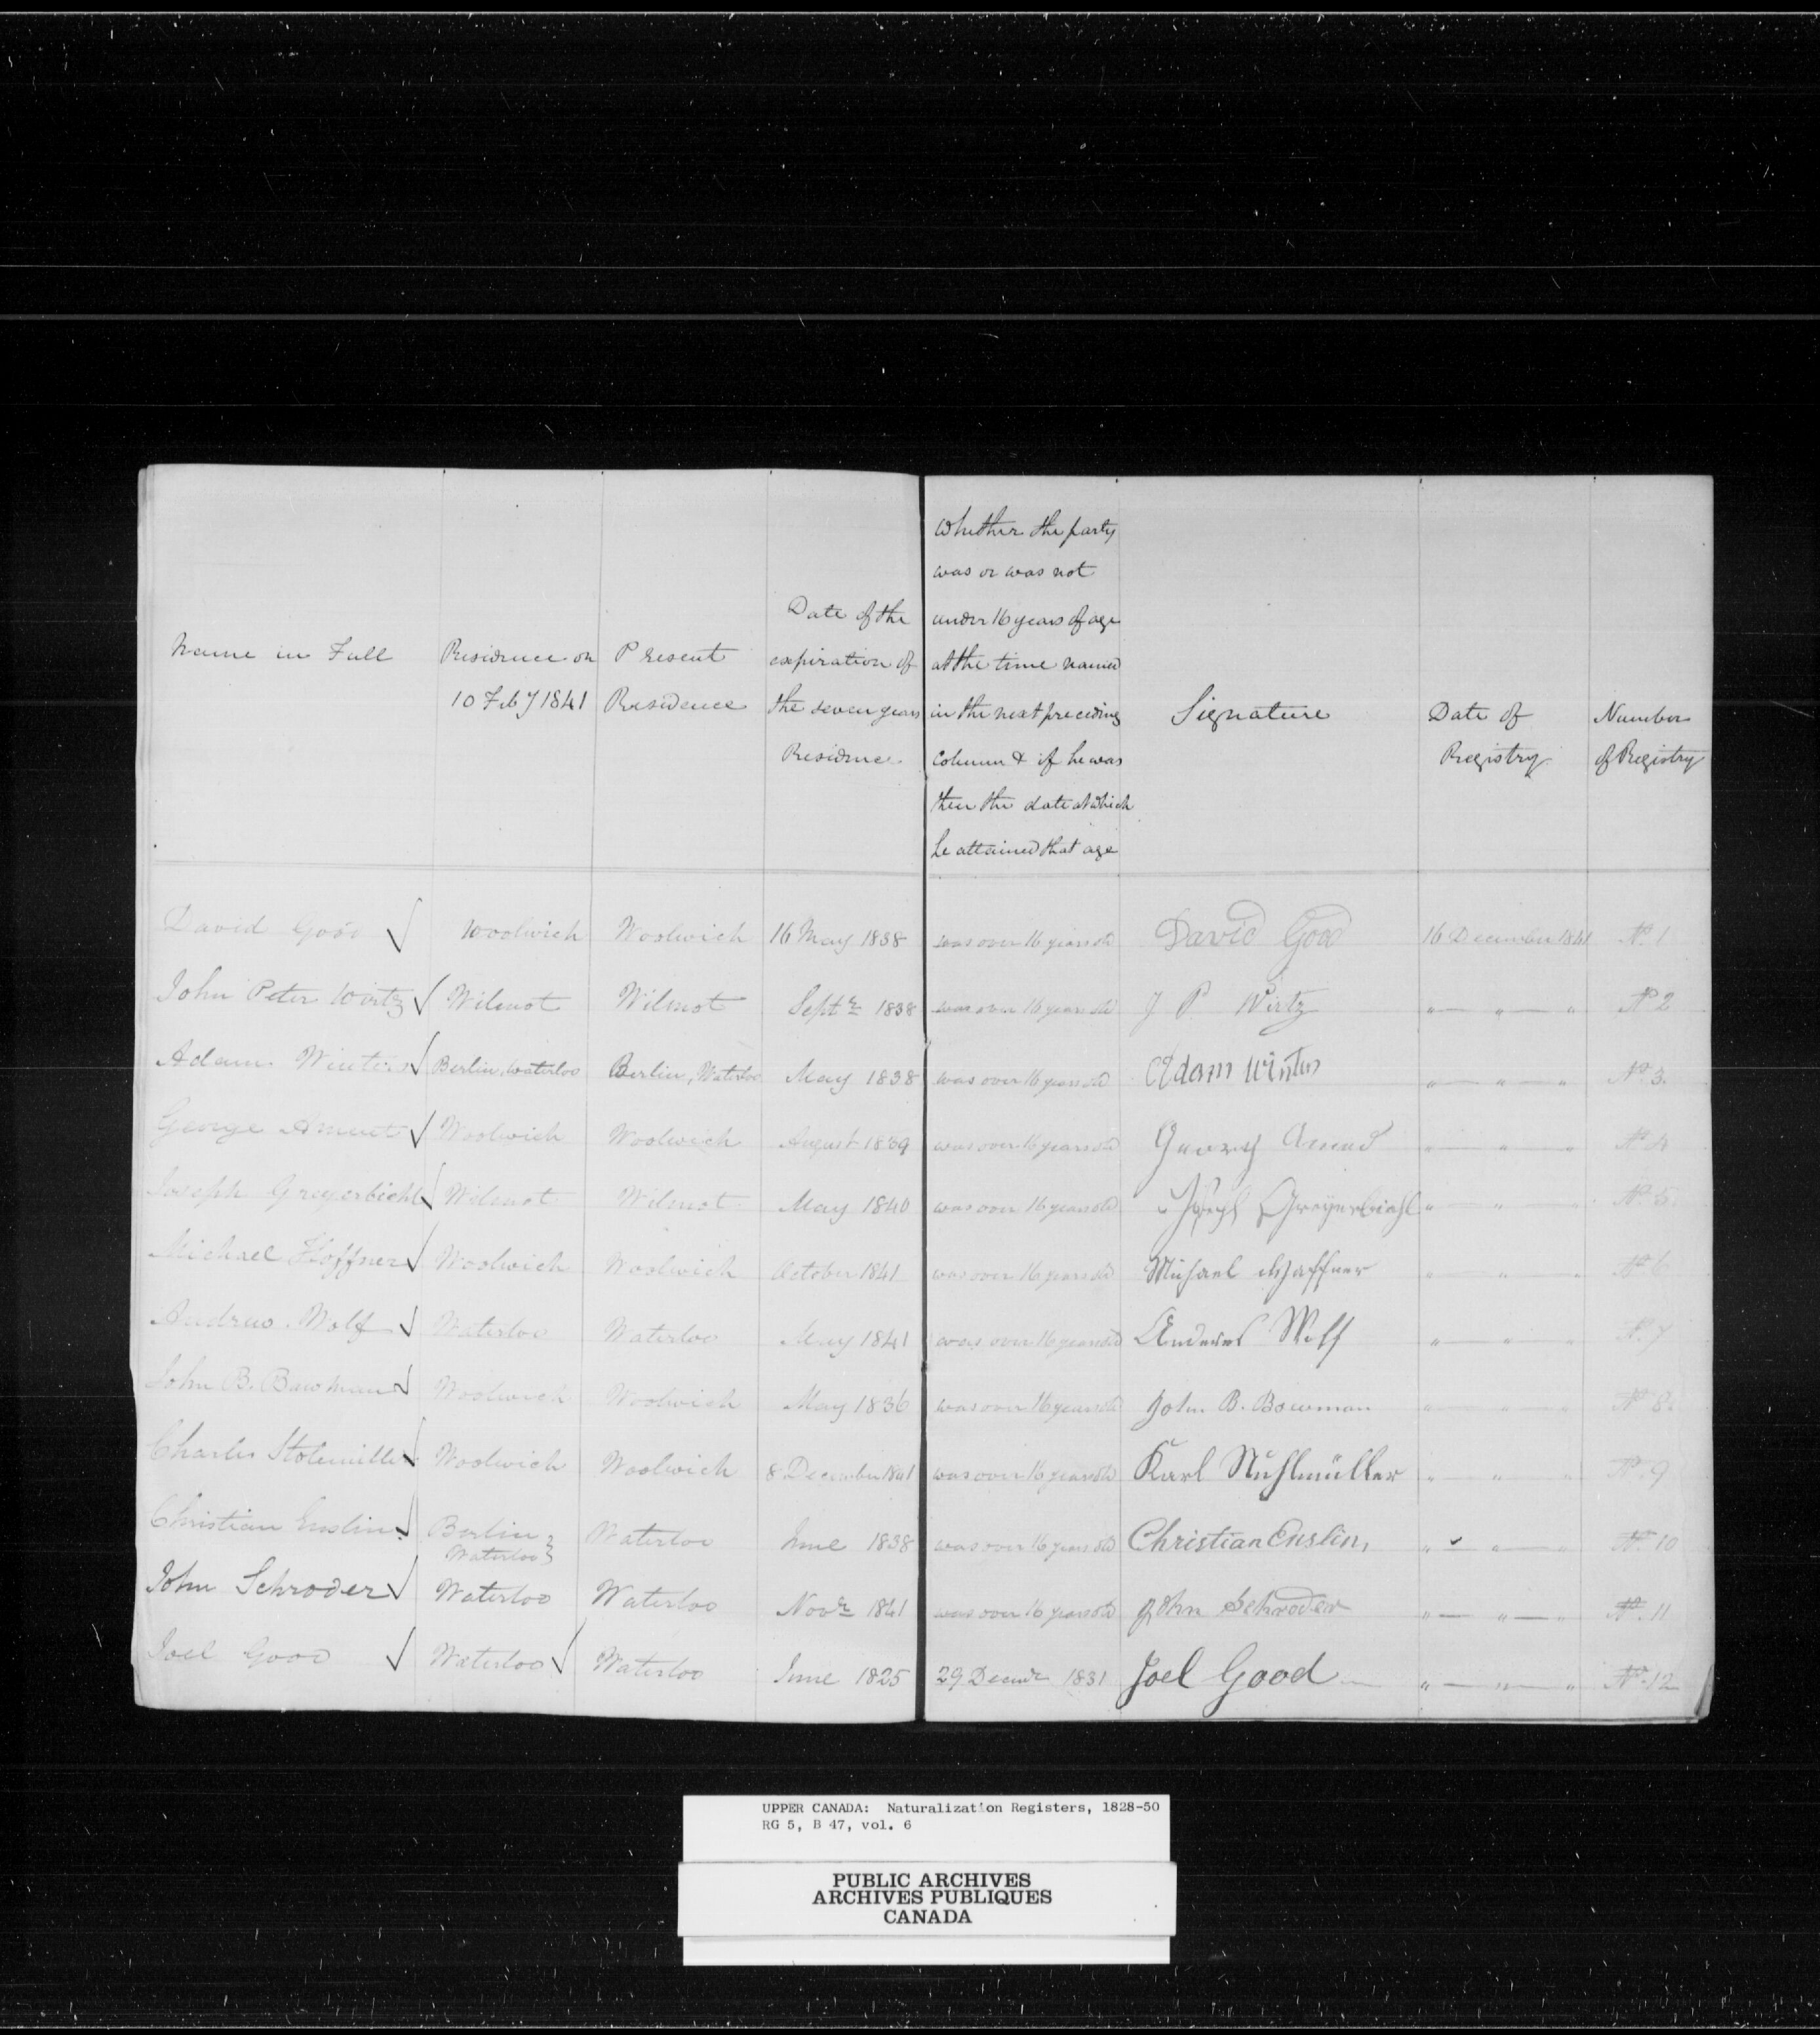 Name in Full
Residence on
10 Feby 1841
Present
Residence
Date of the
expiration of
the seven years
Residence
Whether the party
was or was not
under 16 years of age
at the time named
in the next preceding
column & if he was
then the date at which
he attained that age
Signature
Date of
Registry
Number
of Registry
David Good ✓ Woolwich Woolwich 16 May 1838 was over 16 years old David Good 16 December 1841 No. 1
John Peter Wirtz ✓ Wilmot Wilmot Septr 1838 was over 16 years old J P Wirtz " — " — " No 2
Adam Winter ✓ Berlin, Waterloo Berlin, Waterloo May 1838 was over 16 years old Adam Winter " — " — " No. 3.
George Ament ✓ Woolwich Woolwich August 1839 was over 16 years old Georg " — " — " No 4
Joseph Greyerbiehl ✓ Wilmot Wilmot May 1840 was over 16 years old Joseph Greyerbiehl " — " — " No 5.
Michael Hoffner ✓ Woolwich Woolwich October 1841 was over 16 years old Michael Haffner " — " — " No 6
Andrew Wolf ✓ Waterloo Waterloo May 1841 was over 16 years old Andreas Wolf " — " — " No. 7
John B. Bowman ✓ Woolwich Woolwich May 1836 was over 16 years old John B. Bowman " — " — " No 8.
Charles Stolmiller ✓ Woolwich Woolwich 8 December 1841 was over 16 years old Karl Stuhlmüller " — " — " No. 9
Christian Enslin ✓ Berlin
Waterloo } Waterloo June 1838 was over 16 years old Christian Enslin, " — " — " No. 10
John Schroder ✓ Waterloo Waterloo Novr 1841 was over 16 years old John Schroder " — " — " No. 11
Joel Good ✓ Waterloo ✓ Waterloo June 1825 29 Decemr 1831 Joel Good — " — " — " No. 12
UPPER CANADA: Naturalization Registers, 1828-50
RG 5, B 47, vol. 6
PUBLIC ARCHIVES
ARCHIVES PUBLIQUES
CANADA